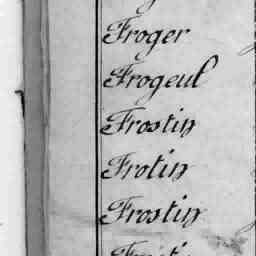 Froger
Frogeul
Frostin
Frotin
Frostin